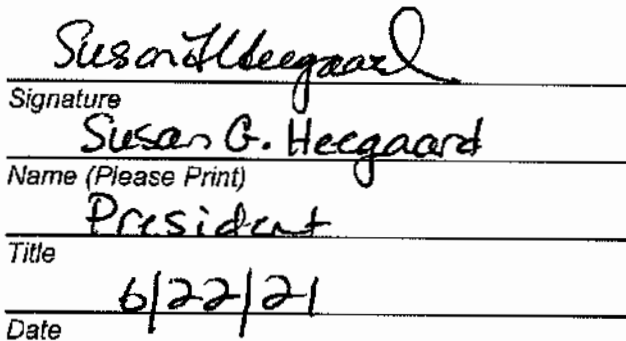 Susan Heegaard
Signature
Susan G. Heegaard
Name (Please Print)
President
Title
6/22/21
Date